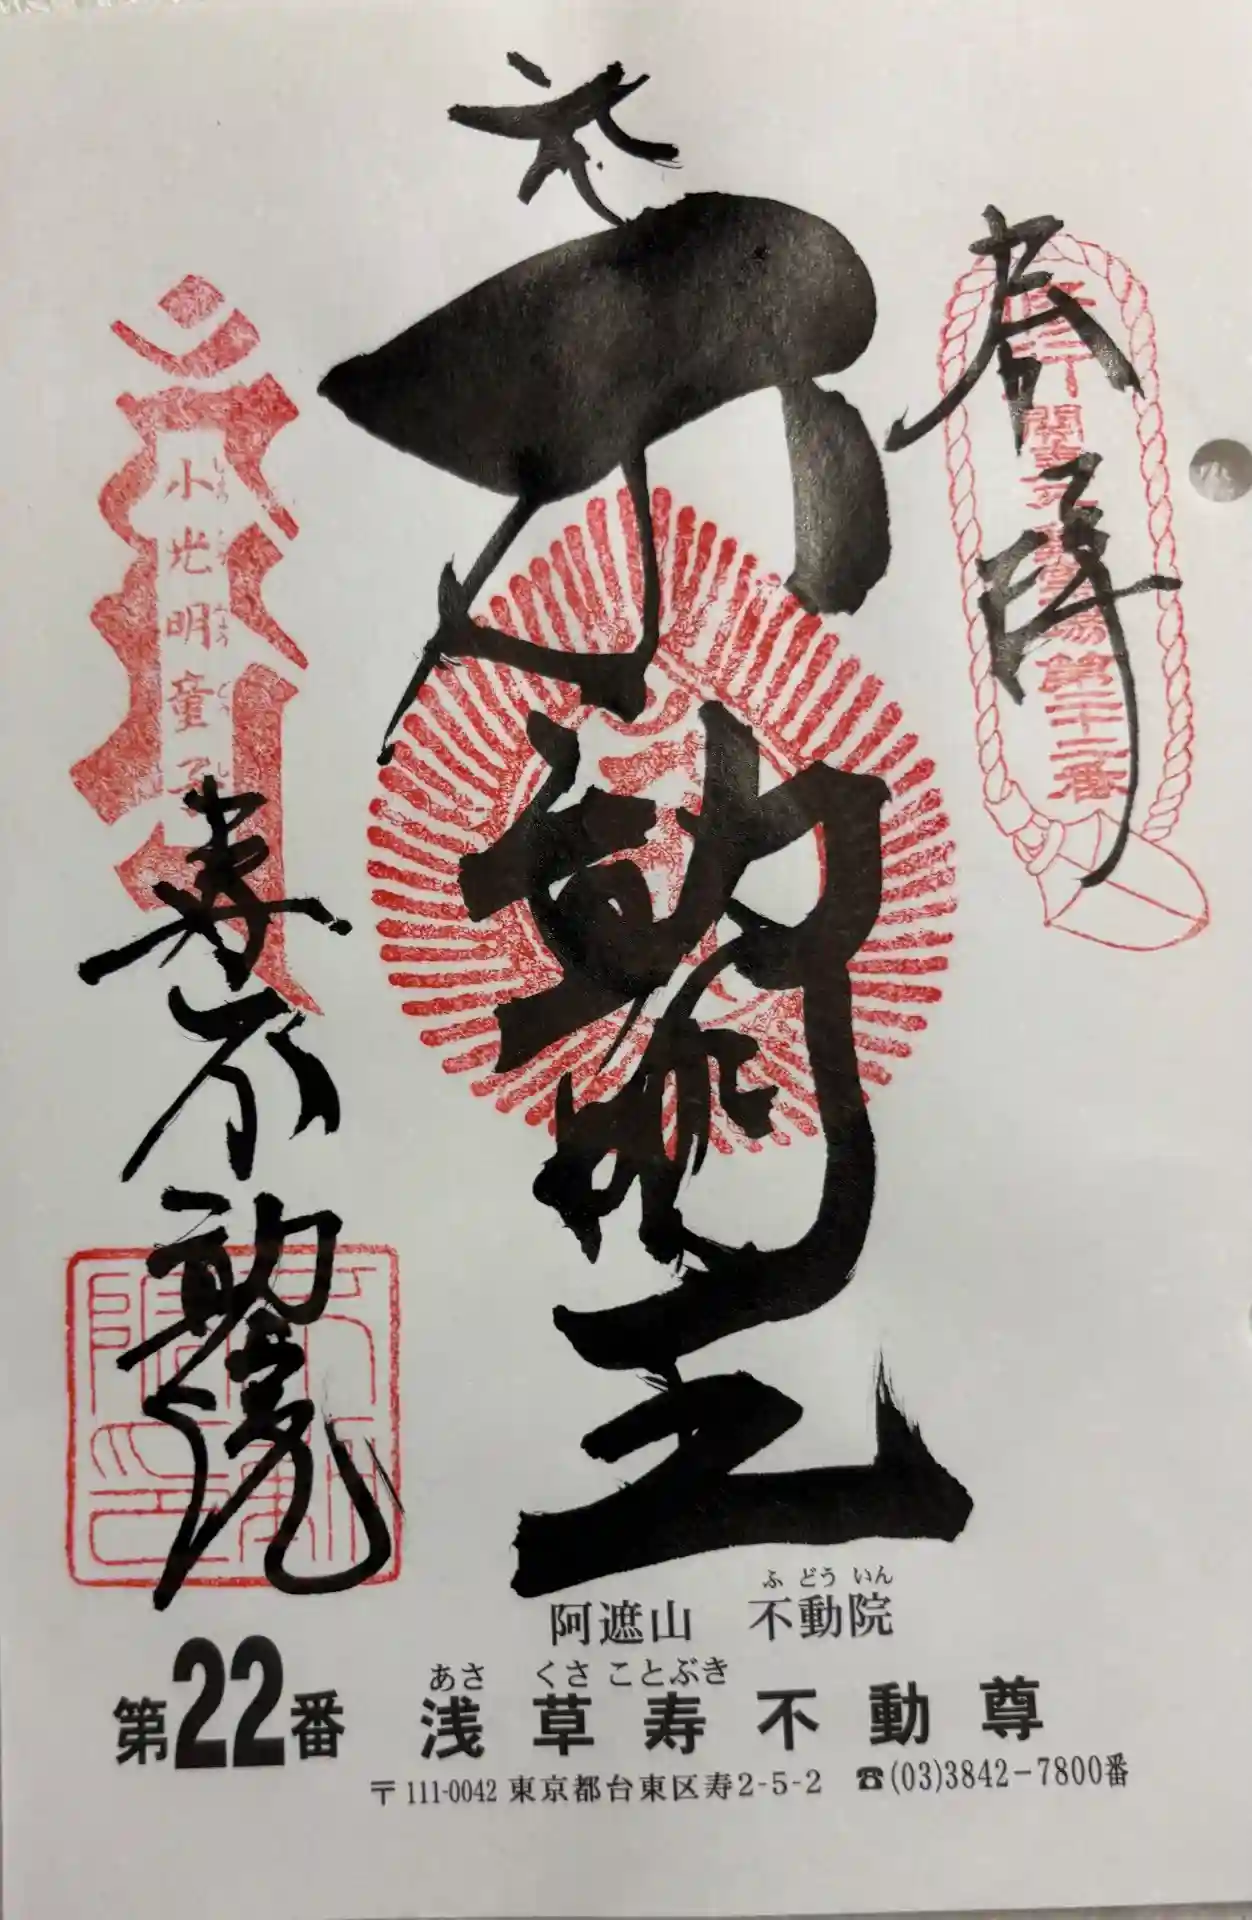 奉拝
修行 関東三十六不動霊場第二十二番
不動明王
小光明童子
しょうこうみょうどうじ
寿不動院
ふどういん
阿遮山 不動院
第22番
あさくさことぶき
浅草寿不動尊
〒111-0042 東京都台東区寿2-5-2 ☎(03)3842-7800番